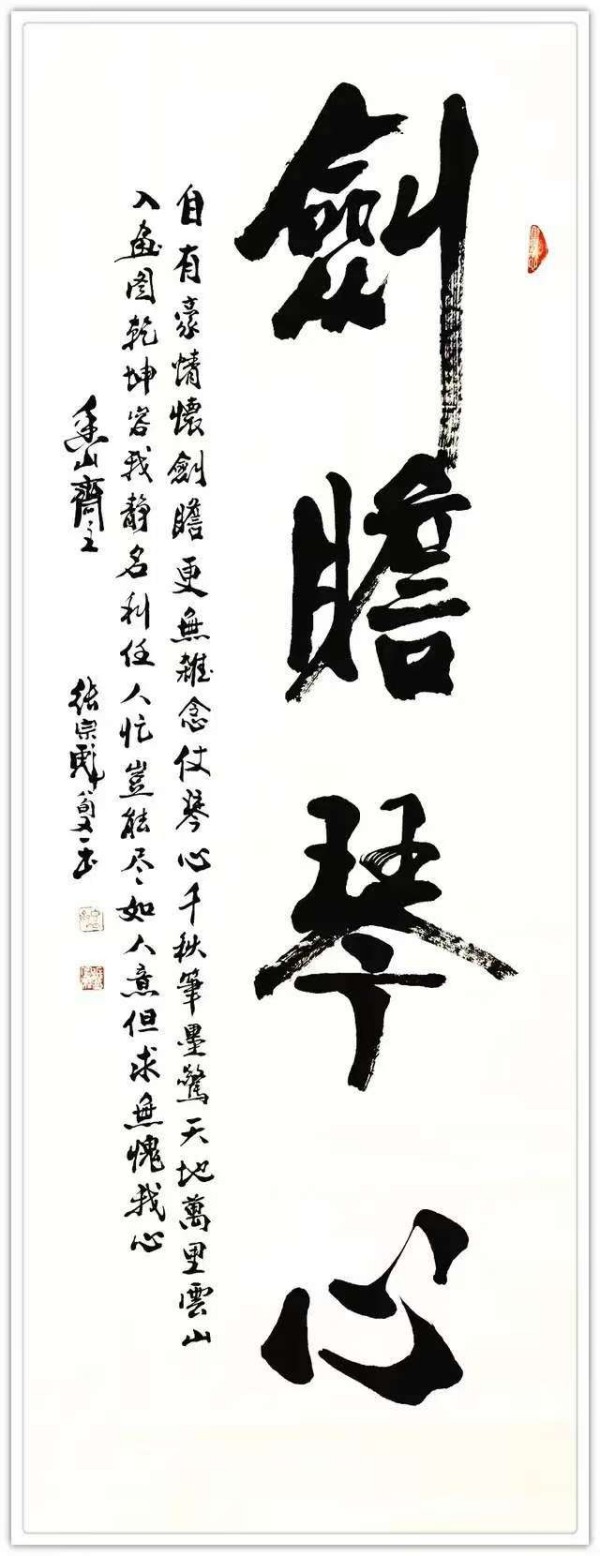 劍膽琴心
自有豪情懷劍膽更無雜念仗琴心千秋筆墨驚天地萬里雲山
入畫图乾坤容我静名利任人忙豈能尽如人意但求無愧我心
山齋主
張宗彪 書